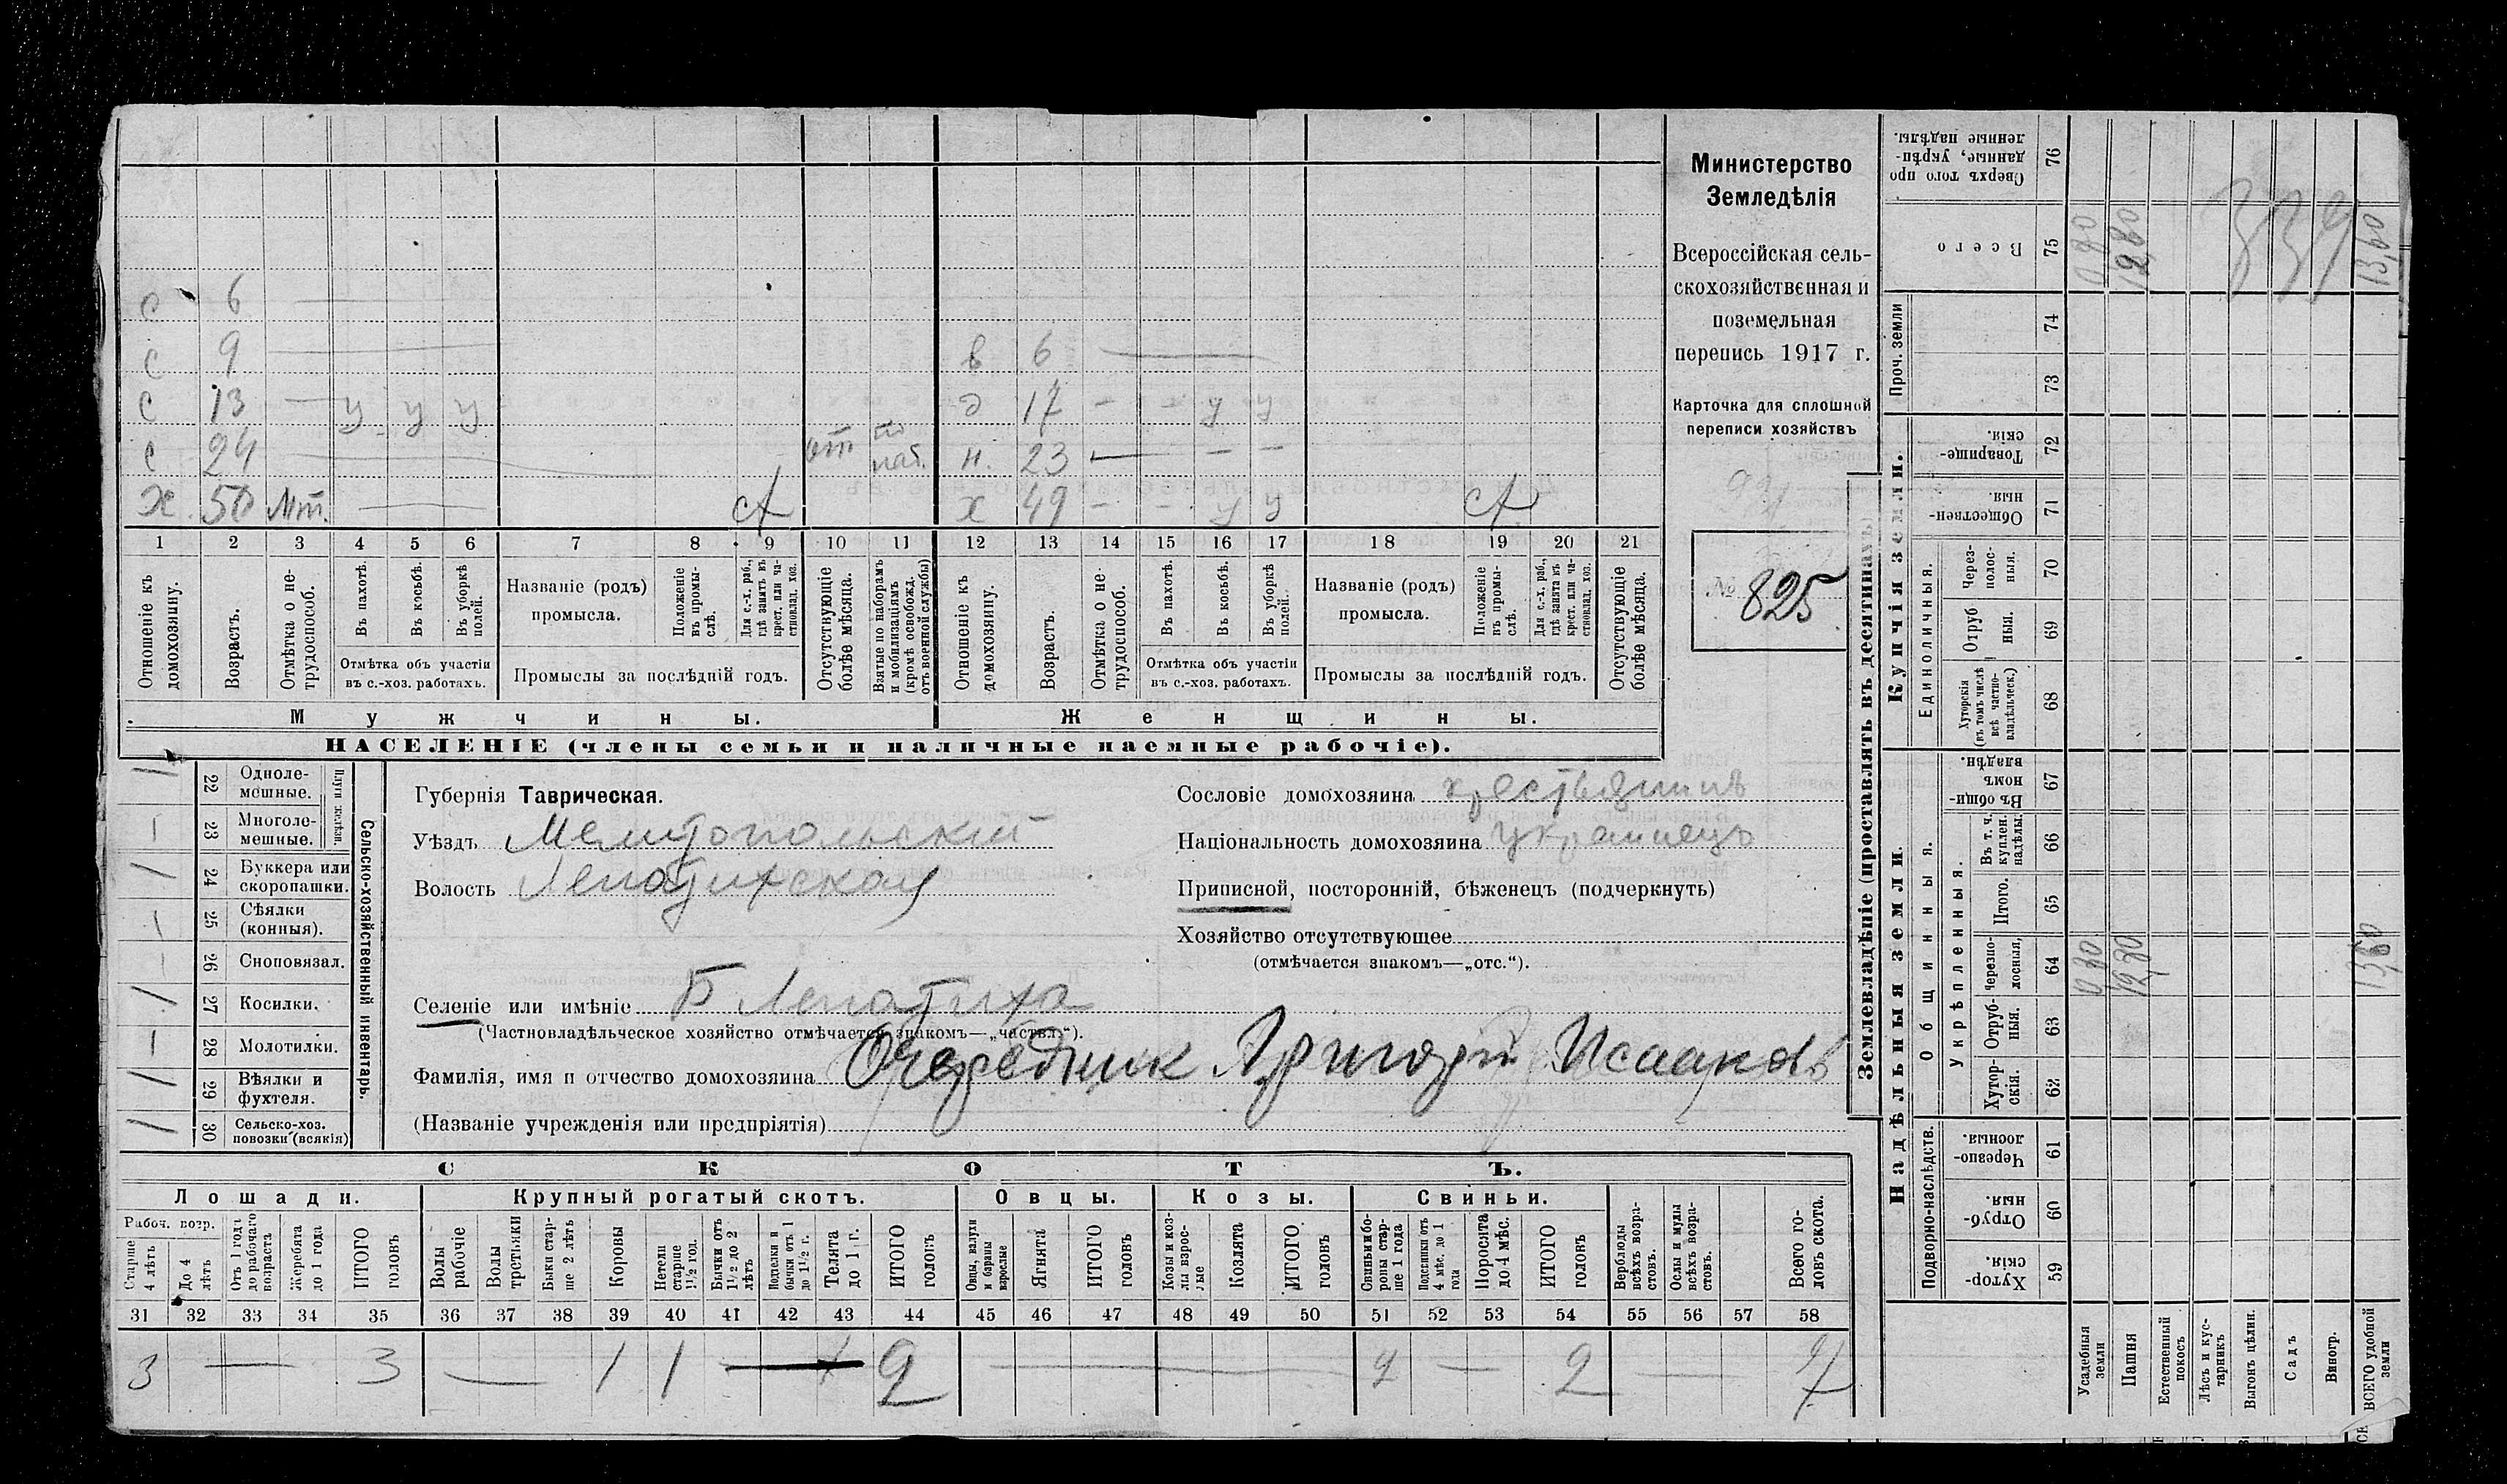 с 6 —
с 9 — в 6 —
с 13 — у у у д 17 - - у у
с 24 — от по наб. н. 23 — — —
х 50 — х 49 - - у у
1 2 3 4 5 6 7 8 9 10 11 12 13 14 15 16 17 18 19 20 21
Отношеніе къ домохозяину.
Возрастъ.
Отмѣтка о не-трудоспособ.
Въ пахотѣ.
Въ косьбѣ.
Въ уборкѣ полей.
Отмѣтка объ участіи
въ с.-хоз. работахъ.
Названіе (родъ)
промысла.
Положеніе въ промы-слѣ.
Для с.-х. раб., гдѣ занятъ въ крест. или ча-стновлад. хоз.
Промыслы за послѣдній годъ.
Отсутствующіе болѣе мѣсяца.
Взятые по наборамъ и мобилизаціямъ (кромѣ освобожд. отъ военной службы)
Отношеніе къ домохозяину.
Возрастъ.
Отмѣтка о не-трудоспособ.
Въ пахотѣ.
Въ косьбѣ.
Въ уборкѣ полей.
Отмѣтка объ участіи
въ с.-хоз. работахъ.
Названіе (родъ)
промысла.
Положеніе въ промы-слѣ.
Для с.-х. раб., гдѣ занята въ крест. или ча-стновлад. хоз.
Промыслы за послѣдній годъ.
Отсутствующіе болѣе мѣсяца.
Мужчины.
Женщины.
НАСЕЛЕНІЕ (члены семьи и наличные наемные рабочіе).
Министерство
Земледѣлія
Всероссійская сель-
скохозяйственная и
поземельная
перепись 1917 г.
Карточка для сплошной
переписи хозяйствъ
№ 825
22 Одноле-мешные.
23 Многоле-мешные.
Плуги желѣзн.
24 Буккера или скоропашки.
25 Сѣялки (конныя).
26 Сноповязал.
27 Косилки.
28 Молотилки.
29 Вѣялки и фухтеля.
30 Сельско-хоз. повозки (всякія)
Сельско-хозяйственный инвентарь.
Губернія Таврическая.
Уѣздъ Мелитопольскій
Волость Лепатихская
Селеніе или имѣніе Б Лепатиха
(Частновладѣльческое хозяйство отмѣчается знакомъ—„частвл.“).
Фамилія, имя и отчество домохозяина Очередник Григорій Исааковъ
(Названіе учрежденія или предпріятія)
Сословіе домохозяина крестьянинъ
Національность домохозяина украинецъ
Приписной, посторонній, бѣженецъ (подчеркнуть)
Хозяйство отсутствующее
(отмѣчается знакомъ—„отс.“).
СКОТЪ.
Лошади. Крупный рогатый скотъ. Овцы. Козы. Свиньи.
Рабоч. возр.
Старше 4 лѣтъ
До 4 лѣтъ
Отъ 1 года до рабочаго возраста
Жеребята до 1 года
ИТОГО головъ
Волы рабочіе
Волы третьяки
Быки стар-ше 2 лѣтъ
Коровы
Нетели старше 1½ год.
Бычки отъ 1½ до 2 лѣтъ
Подтелки и бычки отъ 1 до 1½ г.
Телята до 1 г.
ИТОГО головъ
Овцы, валухи и бараны взрослые
Ягнята
ИТОГО головъ
Козы и коз-лы взрос-лые
Козлята
ИТОГО головъ
Свиньи и бо-ровы стар-ше 1 года
Подсвинки отъ 4 мѣс. до 1 года
Поросята до 4 мѣс.
ИТОГО головъ
Верблюды всѣхъ возра-стовъ.
Ослы и мулы всѣхъ возра-стовъ.
Всего го-ловъ скота.
31 32 33 34 35 36 37 38 39 40 41 42 43 44 45 46 47 48 49 50 51 52 53 54 55 56 57 58
3 — 3 — 1 1 — 2 — 2 — 2 — 7
Землевладѣніе (проставлять въ десятинахъ)
Купчія земли.
Надѣльныя земли.
Сверхъ того про данные, укрѣп-ленные надѣлы. 76
Всего 75 0,80 12,80 339 13,60
Проч. земли
74
73
Товарище-скія. 72
Обществен-ныя. 71
Единоличныя.
Через-полос-ныя. 70
Отруб ныя. 69
Хуторскія (въ томъ числѣ всѣ частно-владѣльческ.) 68
Въ общи-номъ владѣн. 67
Общинныя.
Укрѣпленныя.
Въ т. ч. куплен. надѣлы. 66
Итого. 65
Черезпо-лосныя, 64 0,80 12,80 13,60
Отруб-ныя. 63
Хутор-скія. 62
Подворно-наслѣдств.
Черезпо-лосныя. 61
Отруб-ныя. 60
Хутор-скія. 59
Усадебныя земли
Пашня
Естественный покосъ
Лѣсъ и кус-тарникъ
Выгонъ цѣлин.
Садъ
Виногр.
ВСЕГО удобной земли